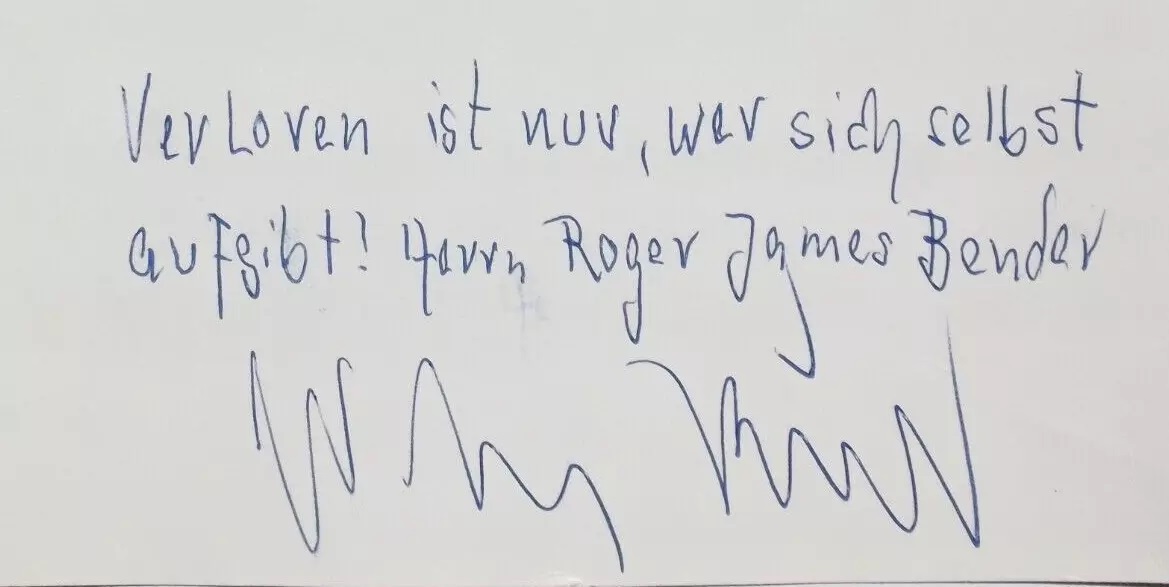 Verloren ist nur, wer sich selbst
aufgibt! Herrn Roger James Bender